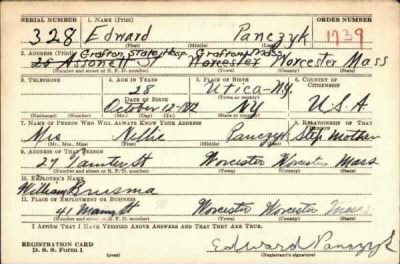 SERIAL NUMBER 1. NAME (Print) ORDER NUMBER
328 Edward Panczyk 1739
(First) (Middle) (Last)
2. ADDRESS (Print) Grafton State Hosp. Grafton Mass
20 Assonett St Worcester Worcester Mass
(Number and street or R. F. D. number) (Town) (County) (State)
3. TELEPHONE 4. AGE IN YEARS 5. PLACE OF BIRTH 6. COUNTRY OF CITIZENSHIP
28 Utica-N.Y.
DATE OF BIRTH (Town or county)
October 12-1912 NY U.S.A
(Exchange) (Number) (Mo.) (Day) (Yr.) (State or country)
7. NAME OF PERSON WHO WILL ALWAYS KNOW YOUR ADDRESS 8. RELATIONSHIP OF THAT PERSON
Mrs Nellie Panczyk Step Mother
(Mr., Mrs., Miss) (First) (Middle) (Last)
9. ADDRESS OF THAT PERSON
27 St Worcester Worcester Mass
(Number and street or R. F. D. number) (Town) (County) (State)
10. EMPLOYER'S NAME
William
11. PLACE OF EMPLOYMENT OR BUSINESS
41 St Worcester Worcester Mass
(Number and street or R. F. D. number) (Town) (County) (State)
I AFFIRM THAT I HAVE VERIFIED ABOVE ANSWERS AND THAT THEY ARE TRUE.
REGISTRATION CARD Edward Panczyk
D. S. S. Form 1 (over) (Registrant's signature)